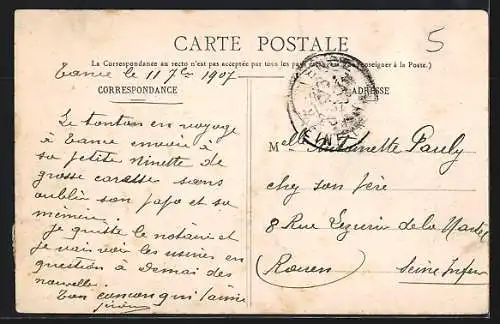 5
CARTE POSTALE
La Correspondance au recto n'est pas acceptée par tous les pays (Se renseigner à la Poste.)
le 11 7bre 1907
CORRESPONDANCE
ADRESSE
Le tonton en voyage
à envoie à
sa petite Ninette de
grosse caresse sans
oublier son papa et sa
mémère.
Je quitte le notaire et
je vais voir les usines en
question à demai des
nouvelle.
Ton qui t'aime
Melle Antoinette Pauly
chez son père
8 Rue de la
(Rouen) Seine Infer